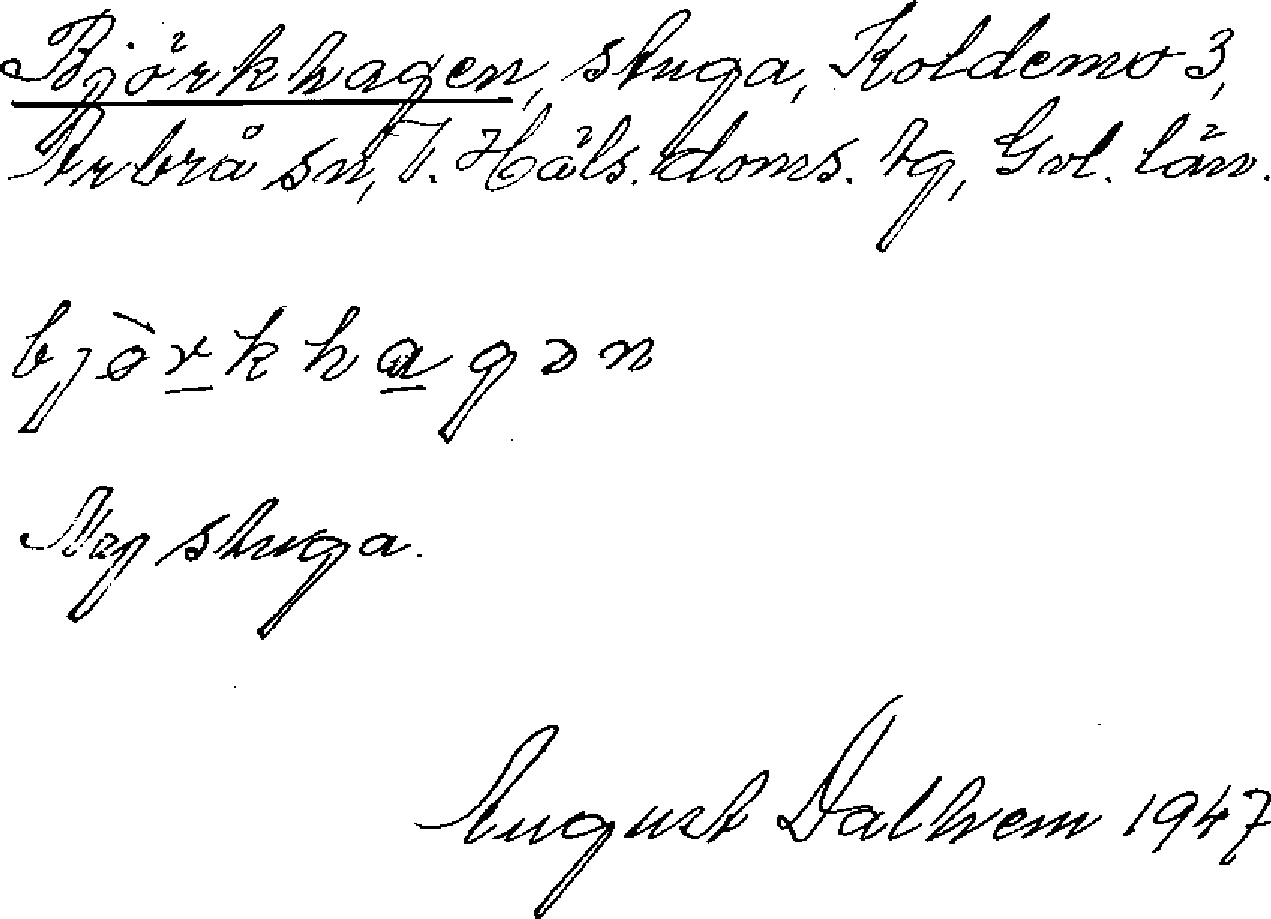 Björkhagen, stuga, Koldemo 3,
Arbrå sn, V. Häls. doms. tg, Gvl. län.
bjö̀rkhagən
Ny stuga.
August Dalhem 1947